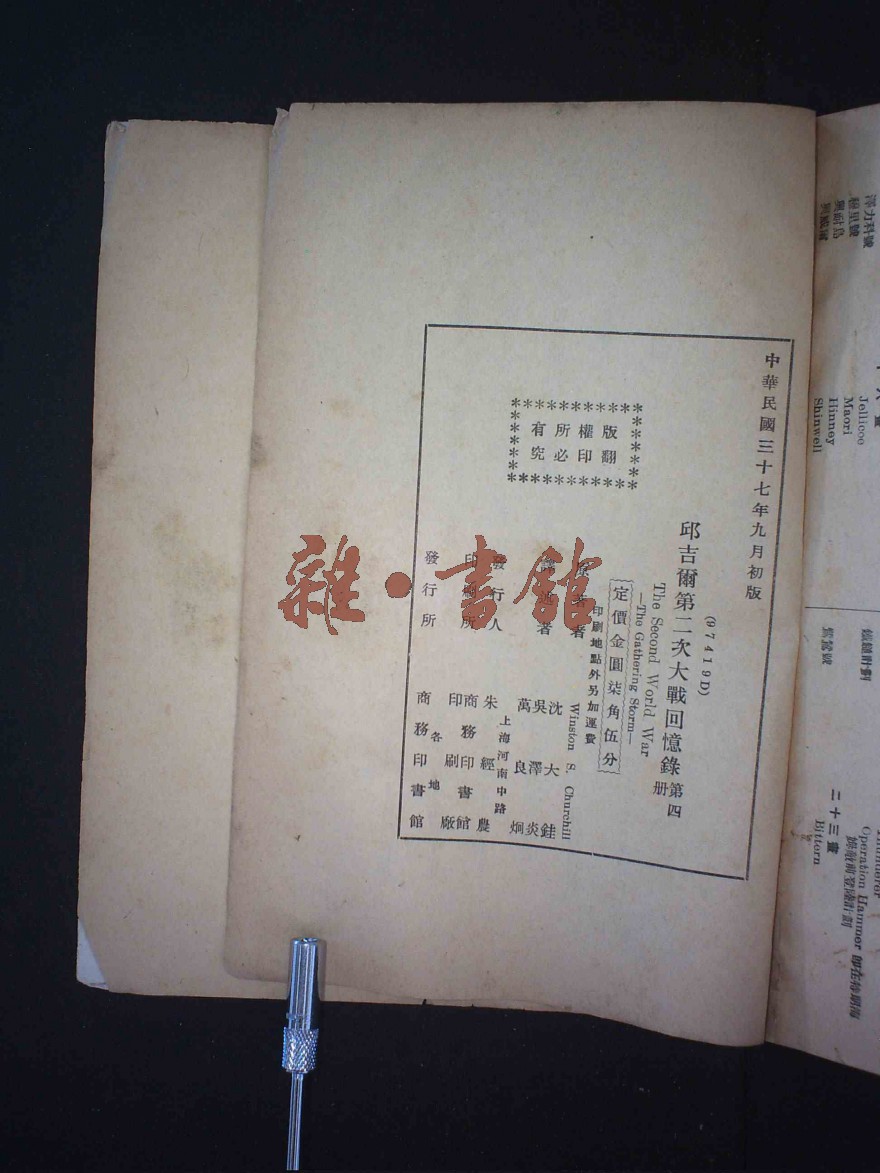 澤力科號
Jellicoe
Maori
Hinney
Shinwell
鴛鴦號
Operation Hammer
二十三畫
Bittern
中華民國三十七年九月初版
(97419D)
邱吉爾第二次大戰回憶錄 第四册
The Second World War
—The Gathering Storm—
定價金圓柒角伍分
印刷地點外另加運費
版權所有
翻印必究
原著者 Winston S. Churchill
譯述者 沈大銈
吳澤炎
萬良炯
發行人 朱經農
上海河南中路
印刷所 商務印書館
印刷廠
發行所 各地
商務印書館
雜·書館